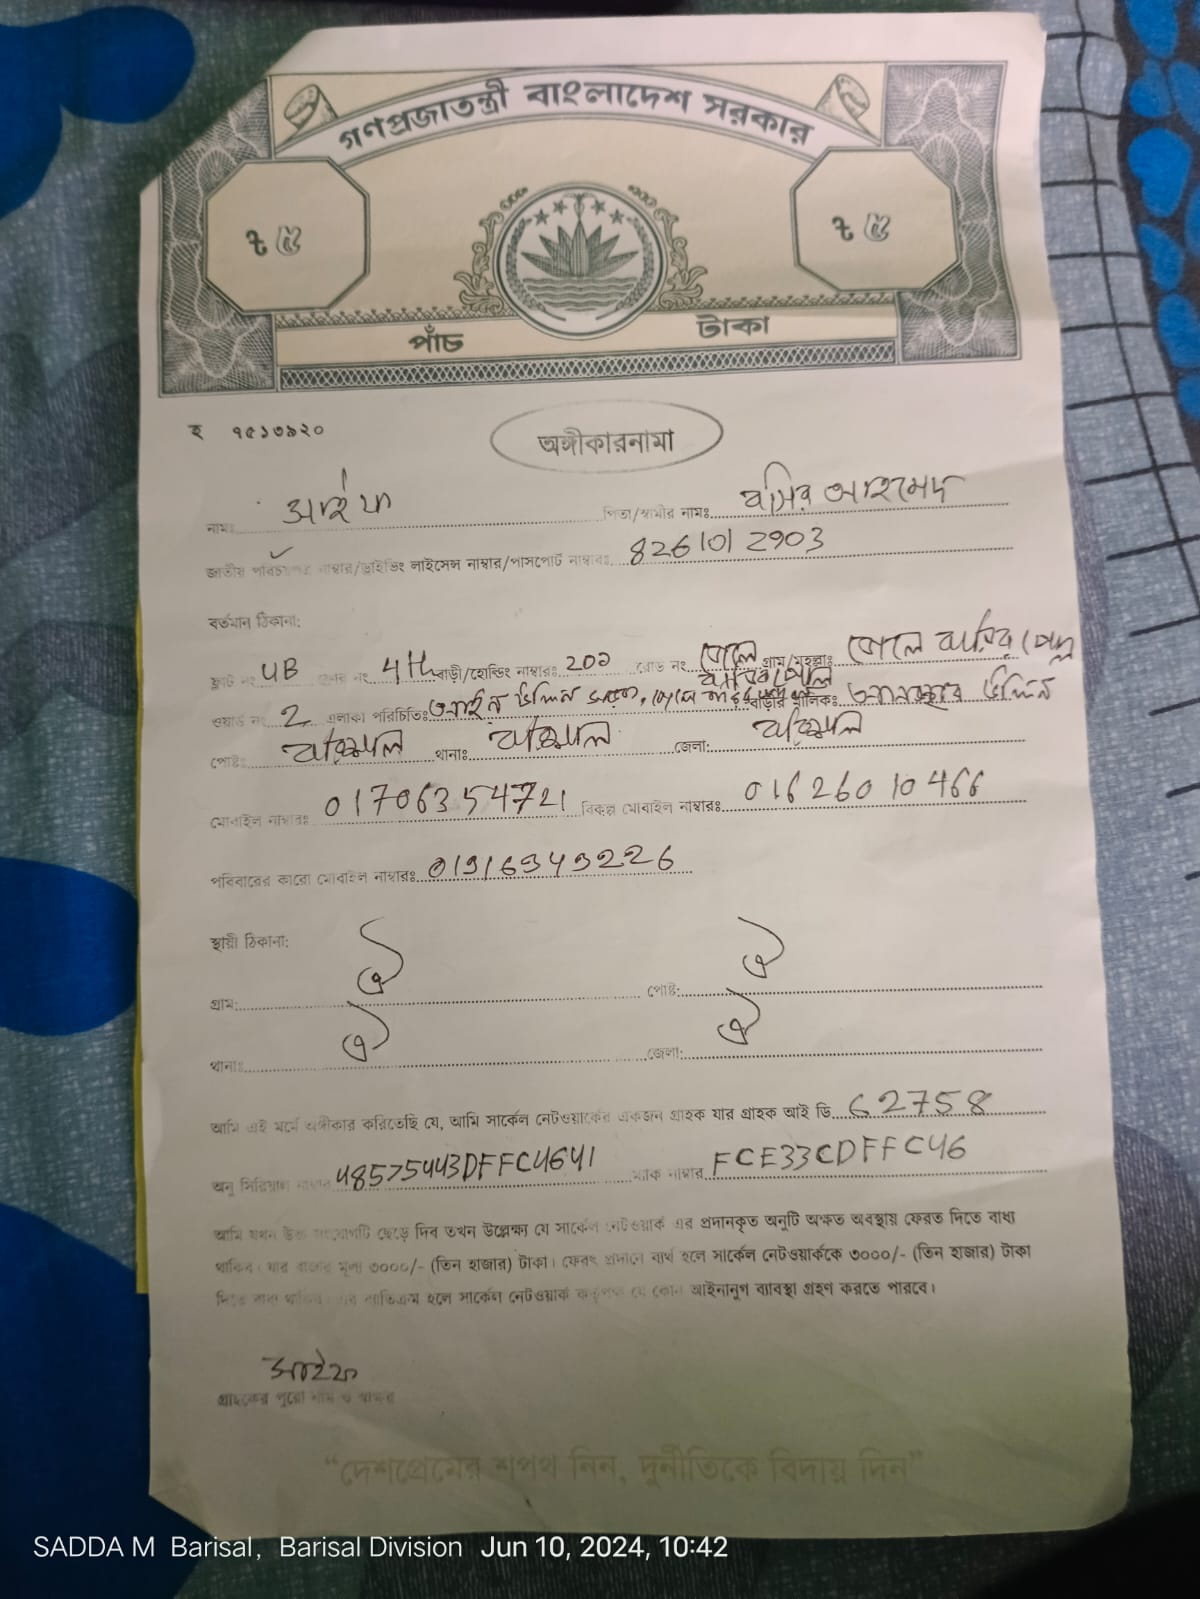 গণপ্রজাতন্ত্রী বাংলাদেশ সরকার
৳ ৫ ৳ ৫
পাঁচ টাকা
হ ৭৫১৩৯২০
অঙ্গীকারনামা
নামঃ সাইফ পিতা/স্বামীর নামঃ বসির আহমেদ
জাতীয় পরিচয়পত্র নাম্বার/ড্রাইভিং লাইসেন্স নাম্বার/পাসপোর্ট নাম্বারঃ 8261012903
বর্তমান ঠিকানা:
ফ্লাট নং 4B নং 4th বাড়ী/হোল্ডিং নাম্বারঃ রোড নং গ্রাম/মহল্লাঃ
ওয়ার্ড নং 2 এলাকা পরিচিতিঃ বাড়ীর মালিকঃ উদ্দিন
পোষ্টঃ বরিশাল থানাঃ বরিশাল জেলা: বরিশাল
মোবাইল নাম্বারঃ 01706354721 বিকল্প মোবাইল নাম্বারঃ 01626010466
পরিবারের কারো মোবাইল নাম্বারঃ
স্থায়ী ঠিকানা:
গ্রাম: ঐ পোষ্ট: ঐ
থানাঃ ঐ জেলা: ঐ
আমি এই মর্মে অঙ্গীকার করিতেছি যে, আমি সার্কেল নেটওয়ার্কের একজন গ্রাহক যার গ্রাহক আই ডি 62758
অনু সিরিয়াল নাম্বার 48575443DFFC4641 ম্যাক নাম্বার FCE33CDFFC46
আমি যখন উক্ত সংযোগটি ছেড়ে দিব তখন উল্লেক্ষ্য যে সার্কেল নেটওয়ার্ক এর প্রদানকৃত অনুটি অক্ষত অবস্থায় ফেরত দিতে বাধ্য
থাকিব। যার বাজার মূল্য ৩০০০/- (তিন হাজার) টাকা। ফেরৎ প্রদানে ব্যর্থ হলে সার্কেল নেটওয়ার্ককে ৩০০০/- (তিন হাজার) টাকা
দিতে বাধ্য থাকিব। ব্যতিক্রম হলে সার্কেল নেটওয়ার্ক কর্তৃপক্ষ যে কোন আইনানুগ ব্যাবস্থা গ্রহণ করতে পারবে।
সাইফ
গ্রাহকের পুরো নাম ও স্বাক্ষর
“দেশপ্রেমের শপথ নিন, দুর্নীতিকে বিদায় দিন”
SADDA M Barisal, Barisal Division Jun 10, 2024, 10:42